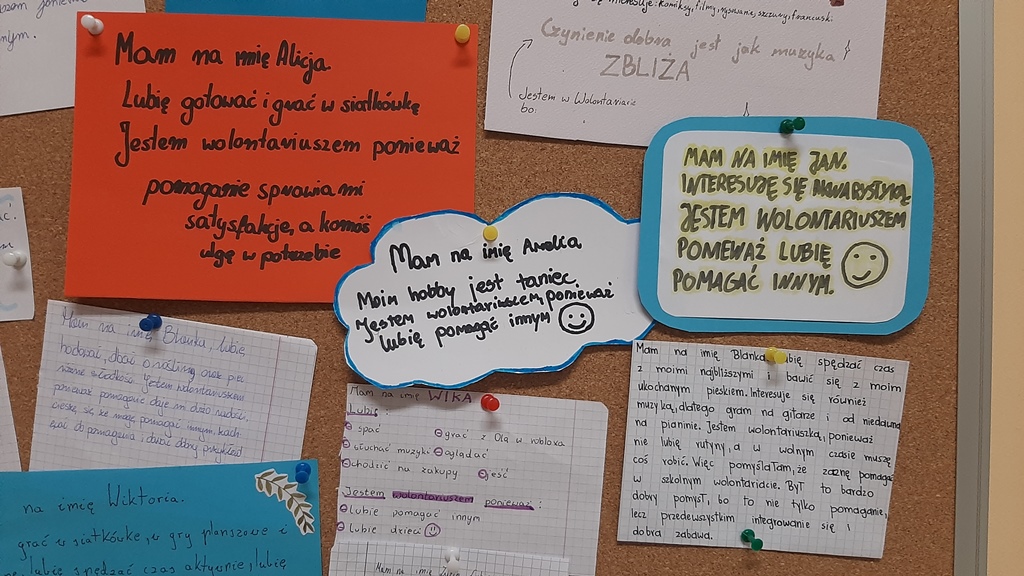 nym.
Mam na imię Alicja.
Lubię gotować i grać w siatkówkę
Jestem wolontariuszem ponieważ
pomaganie sprawia mi
satysfakcje, a komóś
ulgę w potrzebie
komiksy, filmy, rysowanie, szczury, francuski
Czynienie dobra jest jak muzyka
ZBLIŻA
Jestem w Wolontariacie
bo:
MAM NA IMIĘ JAN.
INTERESUJĘ SIĘ
JESTEM WOLONTARIUSZEM
PONIEWAŻ LUBIĘ
POMAGAĆ INNYM.
Mam na imię Anelka
Moim hobby jest taniec
Jestem wolontariuszem, ponieważ
lubię pomagać innym
Mam na imię Blanka, lubię
hodować, dbać o rośliny oraz
słodkości. Jestem wolontariuszem
ponieważ pomaganie daje mi dużo radości,
cieszę się, że mogę pomagać innym,
do pomagania i dawać dobry przykład
Mam na imię WIKA
Lubię:
spać
grać z Olą w robloxa
słuchać muzyki
oglądać
chodzić na zakupy
jeść
Jestem wolontariuszem ponieważ:
lubie pomagać innym
lubie dzieci
Mam na imię
Mam na imię Blanka. Lubię spędzać czas
z moimi najbliższymi i bawić się z moim
ukochanym pieskiem. Interesuje się również
muzyką, dlatego gram na gitarze i od niedawna
na pianinie. Jestem wolontariuszką, ponieważ
nie lubię rutyny, a w wolnym czasie muszę
coś robić. Więc pomyślałam, że zacznę pomagać
w szkolnym wolontariacie. Był to bardzo
dobry pomysł, bo to nie tylko pomaganie,
lecz przedewszystkim integrowanie się i
dobra zabawa.
na imię Wiktoria.
grać w siatkówke, w gry planszowe i
lubię spędzać czas aktywnie, lubię